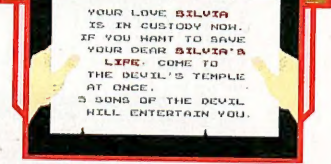 YOUR LOVE SILVIA
IS IN CUSTODY NOW.
IF YOU WANT TO SAVE
YOUR DEAR SILVIA'S
LIFE, COME TO
THE DEVIL'S TEMPLE
AT ONCE.
5 SONS OF THE DEVIL
WILL ENTERTAIN YOU.